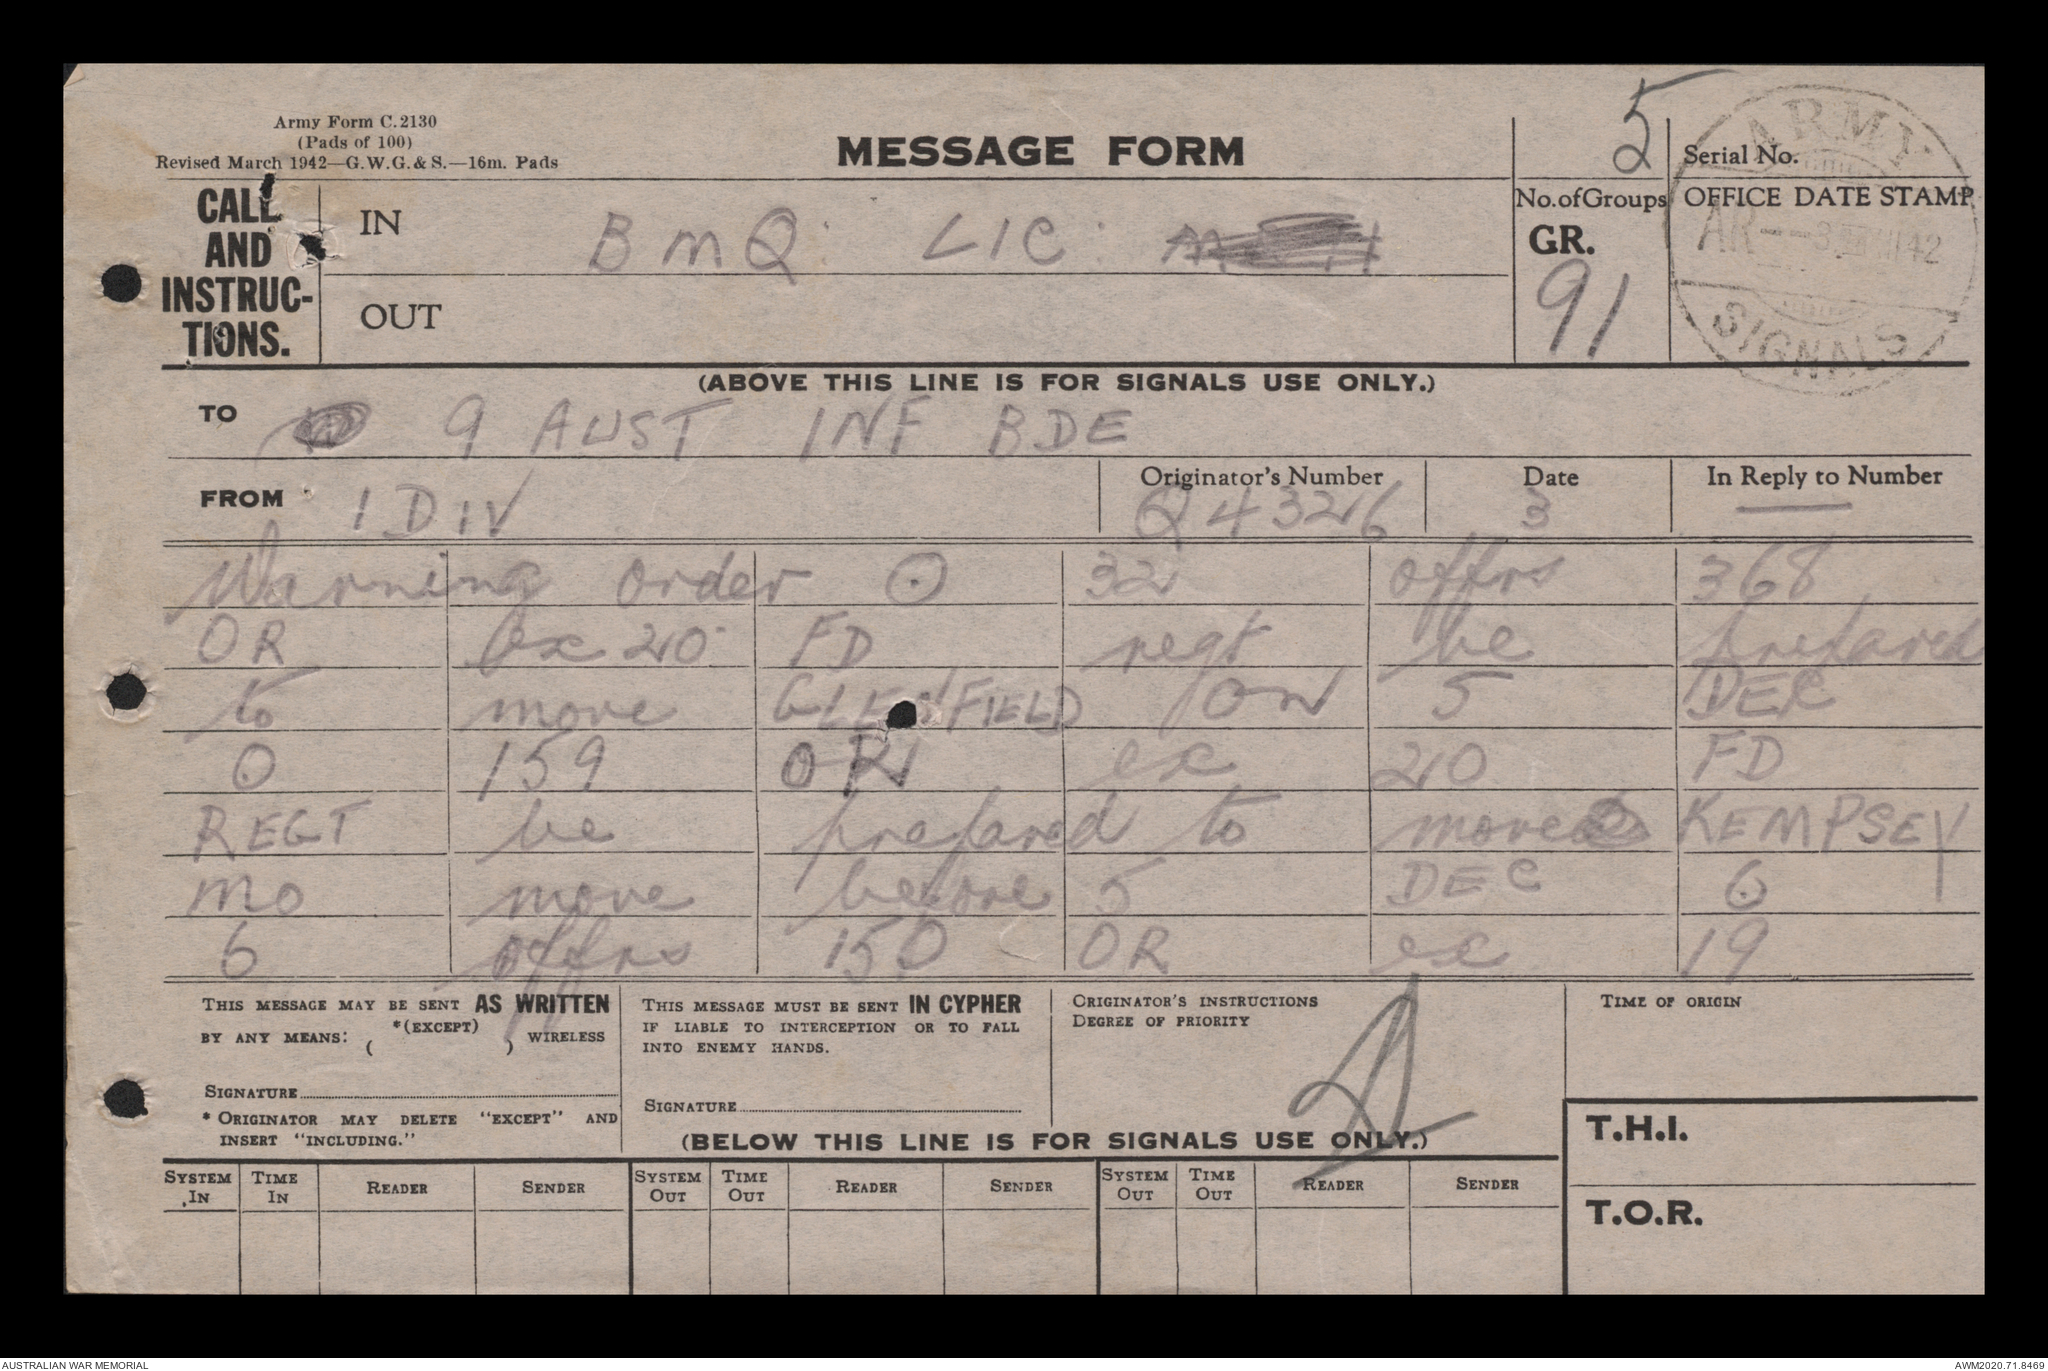 Army Form C.2130
(Pads of 100)
Revised March 1942—G.W.G.&S.—16m. Pads
MESSAGE FORM
5
Serial No.
CALL AND INSTRUC-TIONS.
IN
BMQ: LIC:
OUT
No. of Groups
GR.
91
OFFICE DATE STAMP
ARMY
SIGNALS
(ABOVE THIS LINE IS FOR SIGNALS USE ONLY.)
TO 9 AUST INF BDE
FROM 1 DIV
Originator's Number
Q4326
Date
3
In Reply to Number
—
Warning order ⊙ 32 offrs 368
OR ex 20 FD regt be prepared
to move GLENFIELD ON 5 DEC
⊙ 159 OR ex 20 FD
REGT be prepared to move KEMPSEY
MO move before 5 DEC ⊙
6 offrs 150 OR ex 19
THIS MESSAGE MAY BE SENT AS WRITTEN
BY ANY MEANS: *(EXCEPT) ( ) WIRELESS
SIGNATURE
* ORIGINATOR MAY DELETE "EXCEPT" AND
INSERT "INCLUDING."
THIS MESSAGE MUST BE SENT IN CYPHER
IF LIABLE TO INTERCEPTION OR TO FALL
INTO ENEMY HANDS.
SIGNATURE
ORIGINATOR'S INSTRUCTIONS
DEGREE OF PRIORITY
TIME OF ORIGIN
(BELOW THIS LINE IS FOR SIGNALS USE ONLY.)
T.H.I.
T.O.R.
SYSTEM IN TIME IN READER SENDER SYSTEM OUT TIME OUT READER SENDER SYSTEM OUT TIME OUT READER SENDER
AUSTRALIAN WAR MEMORIAL
AWM2020.71.8469